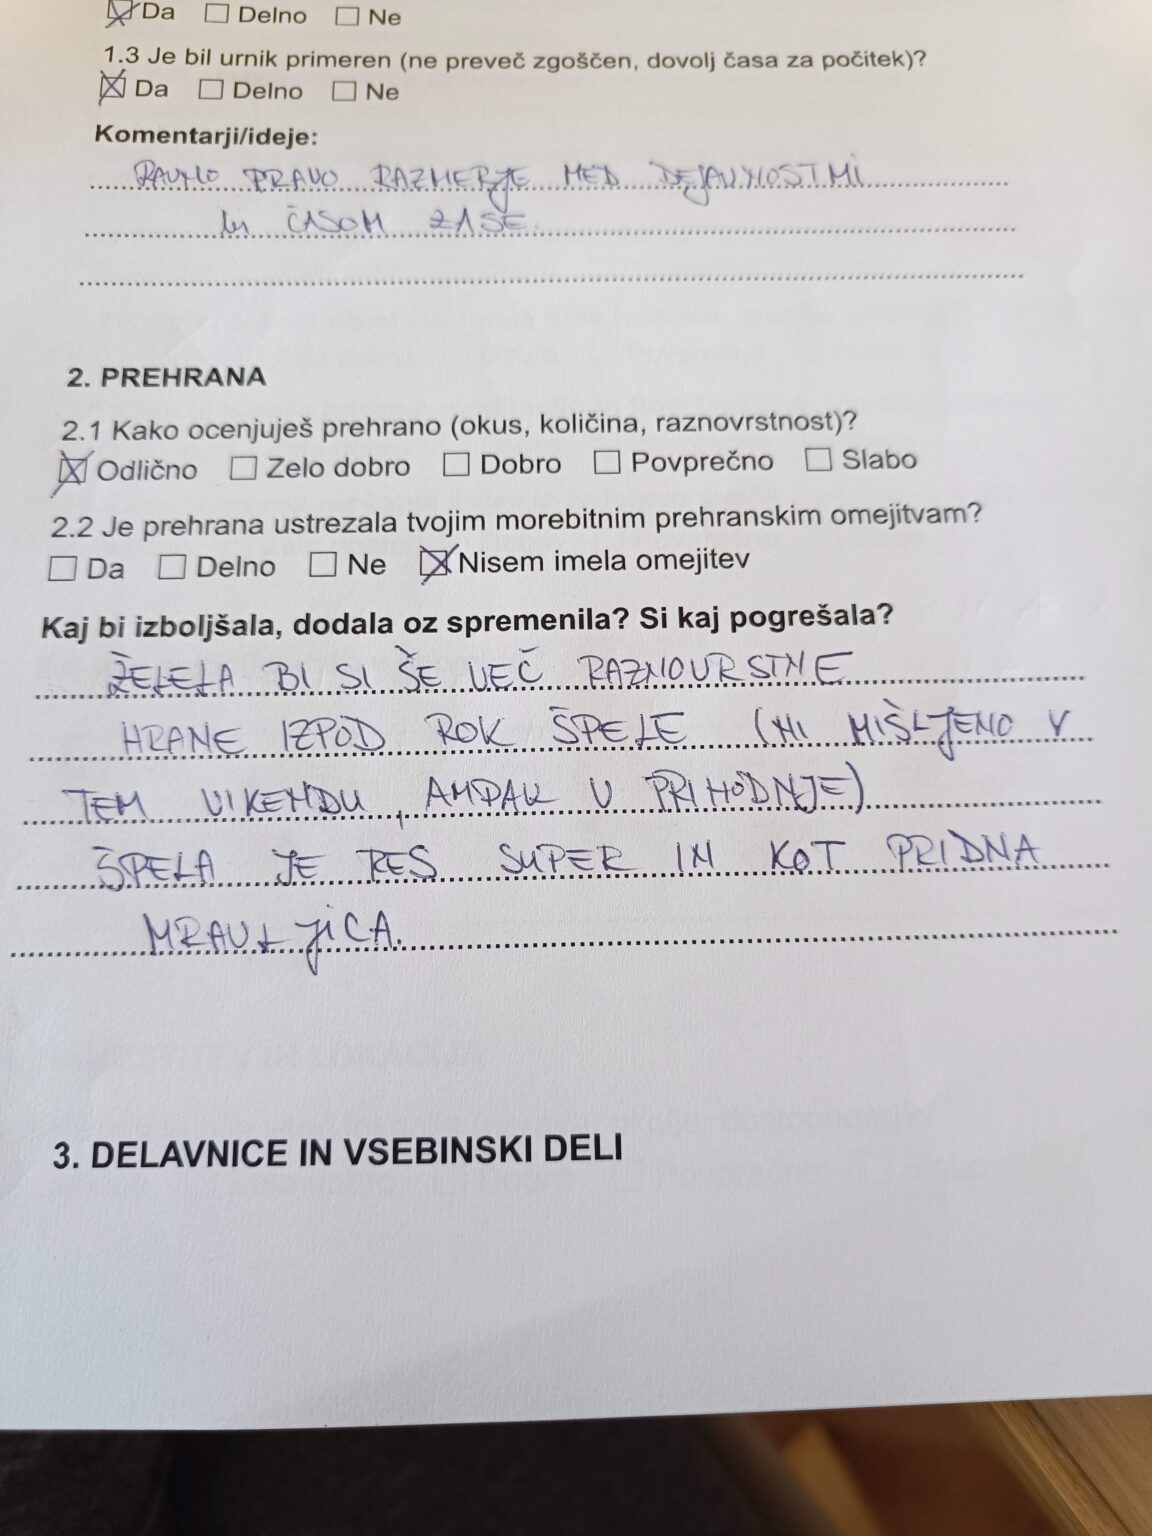 ☒ Da ☐ Delno ☐ Ne
1.3 Je bil urnik primeren (ne preveč zgoščen, dovolj časa za počitek)?
☒ Da ☐ Delno ☐ Ne
Komentarji/ideje:
RAVNO PRAVO RAZMERJE MED DEJAVNOSTMI
in ČASOM ZASE.
2. PREHRANA
2.1 Kako ocenjuješ prehrano (okus, količina, raznovrstnost)?
☒ Odlično ☐ Zelo dobro ☐ Dobro ☐ Povprečno ☐ Slabo
2.2 Je prehrana ustrezala tvojim morebitnim prehranskim omejitvam?
☐ Da ☐ Delno ☐ Ne ☒ Nisem imela omejitev
Kaj bi izboljšala, dodala oz spremenila? Si kaj pogrešala?
ŽELELA BI SI ŠE VEČ RAZNOVRSTNE
HRANE IZPOD ROK ŠPELE (NI MIŠLJENO V
TEM VIKENDU, AMPAK V PRIHODNJE)
ŠPELA JE RES SUPER IN KOT PRIDNA
MRAVLJICA.
3. DELAVNICE IN VSEBINSKI DELI